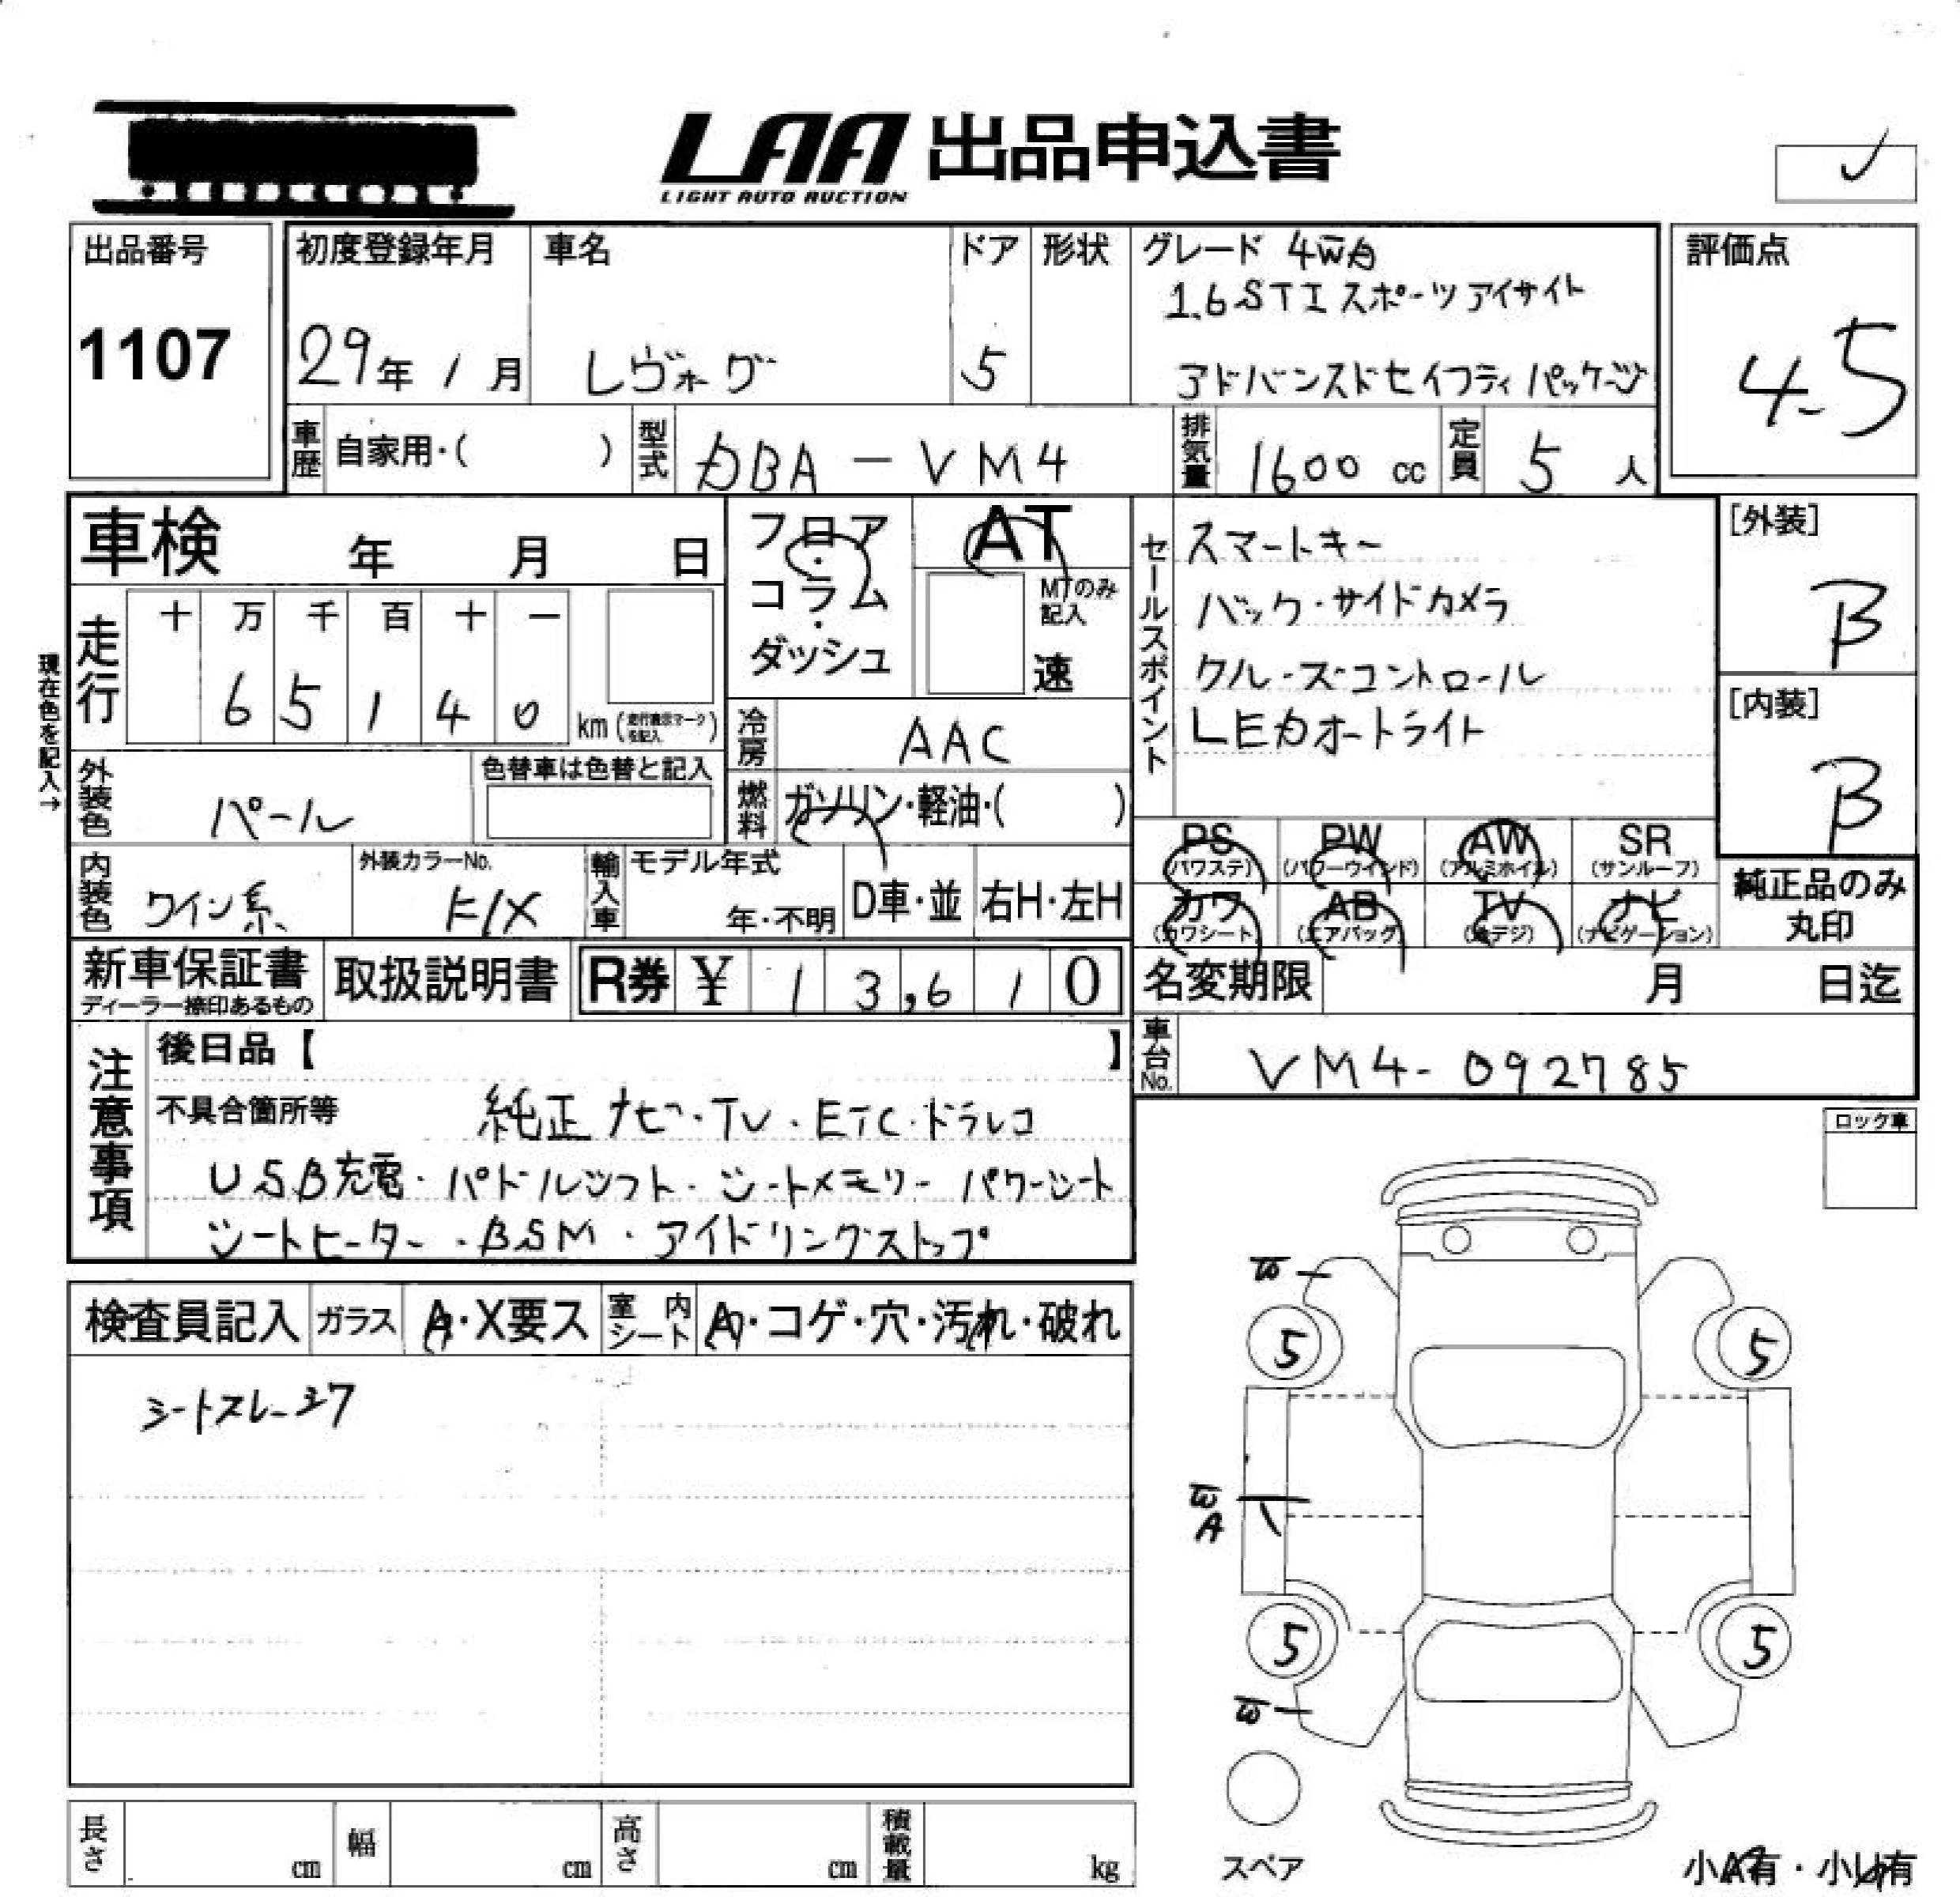 LAA 出品申込書
LIGHT AUTO AUCTION
出品番号
1107
初度登録年月
29年 1月
車名
レヴォーグ
ドア
5
形状
グレード 4WD
1.6 STI スポーツ アイサイト
アドバンスドセイフティ パッケージ
評価点
4.5
車歴 自家用・( )
型式 DBA-VM4
排気量 1600 cc
定員 5 人
車検 年 月 日
フロア・コラム・ダッシュ
AT
MTのみ記入
速
現在色を記入→
走行
十 万 千 百 十 一
6 5 1 4 0 km (走行表示マークを記入)
冷房 AAC
燃料 ガソリン・軽油・( )
外装色 パール
色替車は色替と記入
内装色 ワイン系
外装カラーNo. K1X
輸入車 モデル年式
年・不明
D車・並
右H・左H
セールスポイント
スマートキー
バック・サイドカメラ
クルーズコントロール
LEDオートライト
[外装]
B
[内装]
B
PS (パワステ) PW (パワーウインド) AW (アルミホイル) SR (サンルーフ)
カワ (カワシート) AB (エアバック) TV (地デジ) ナビ (ナビゲーション)
純正品のみ丸印
新車保証書
ディーラー捺印あるもの
取扱説明書
R券 ¥ 13,610
名変期限 月 日迄
車台No. VM4-092785
注意事項
後日品【 】
不具合箇所等 純正ナビ・TV・ETC・ドラレコ
USB充電・パドルシフト・シートメモリー パワーシート
シートヒーター・BSM・アイドリングストップ
ロック車
検査員記入 ガラス A・X要ス 室内シート A・コゲ・穴・汚れ・破れ
シートスレ・シワ
W
5 5
W
A
5 5
W
スペア
長さ cm 幅 cm 高さ cm 積載量 kg
小A有・小U有